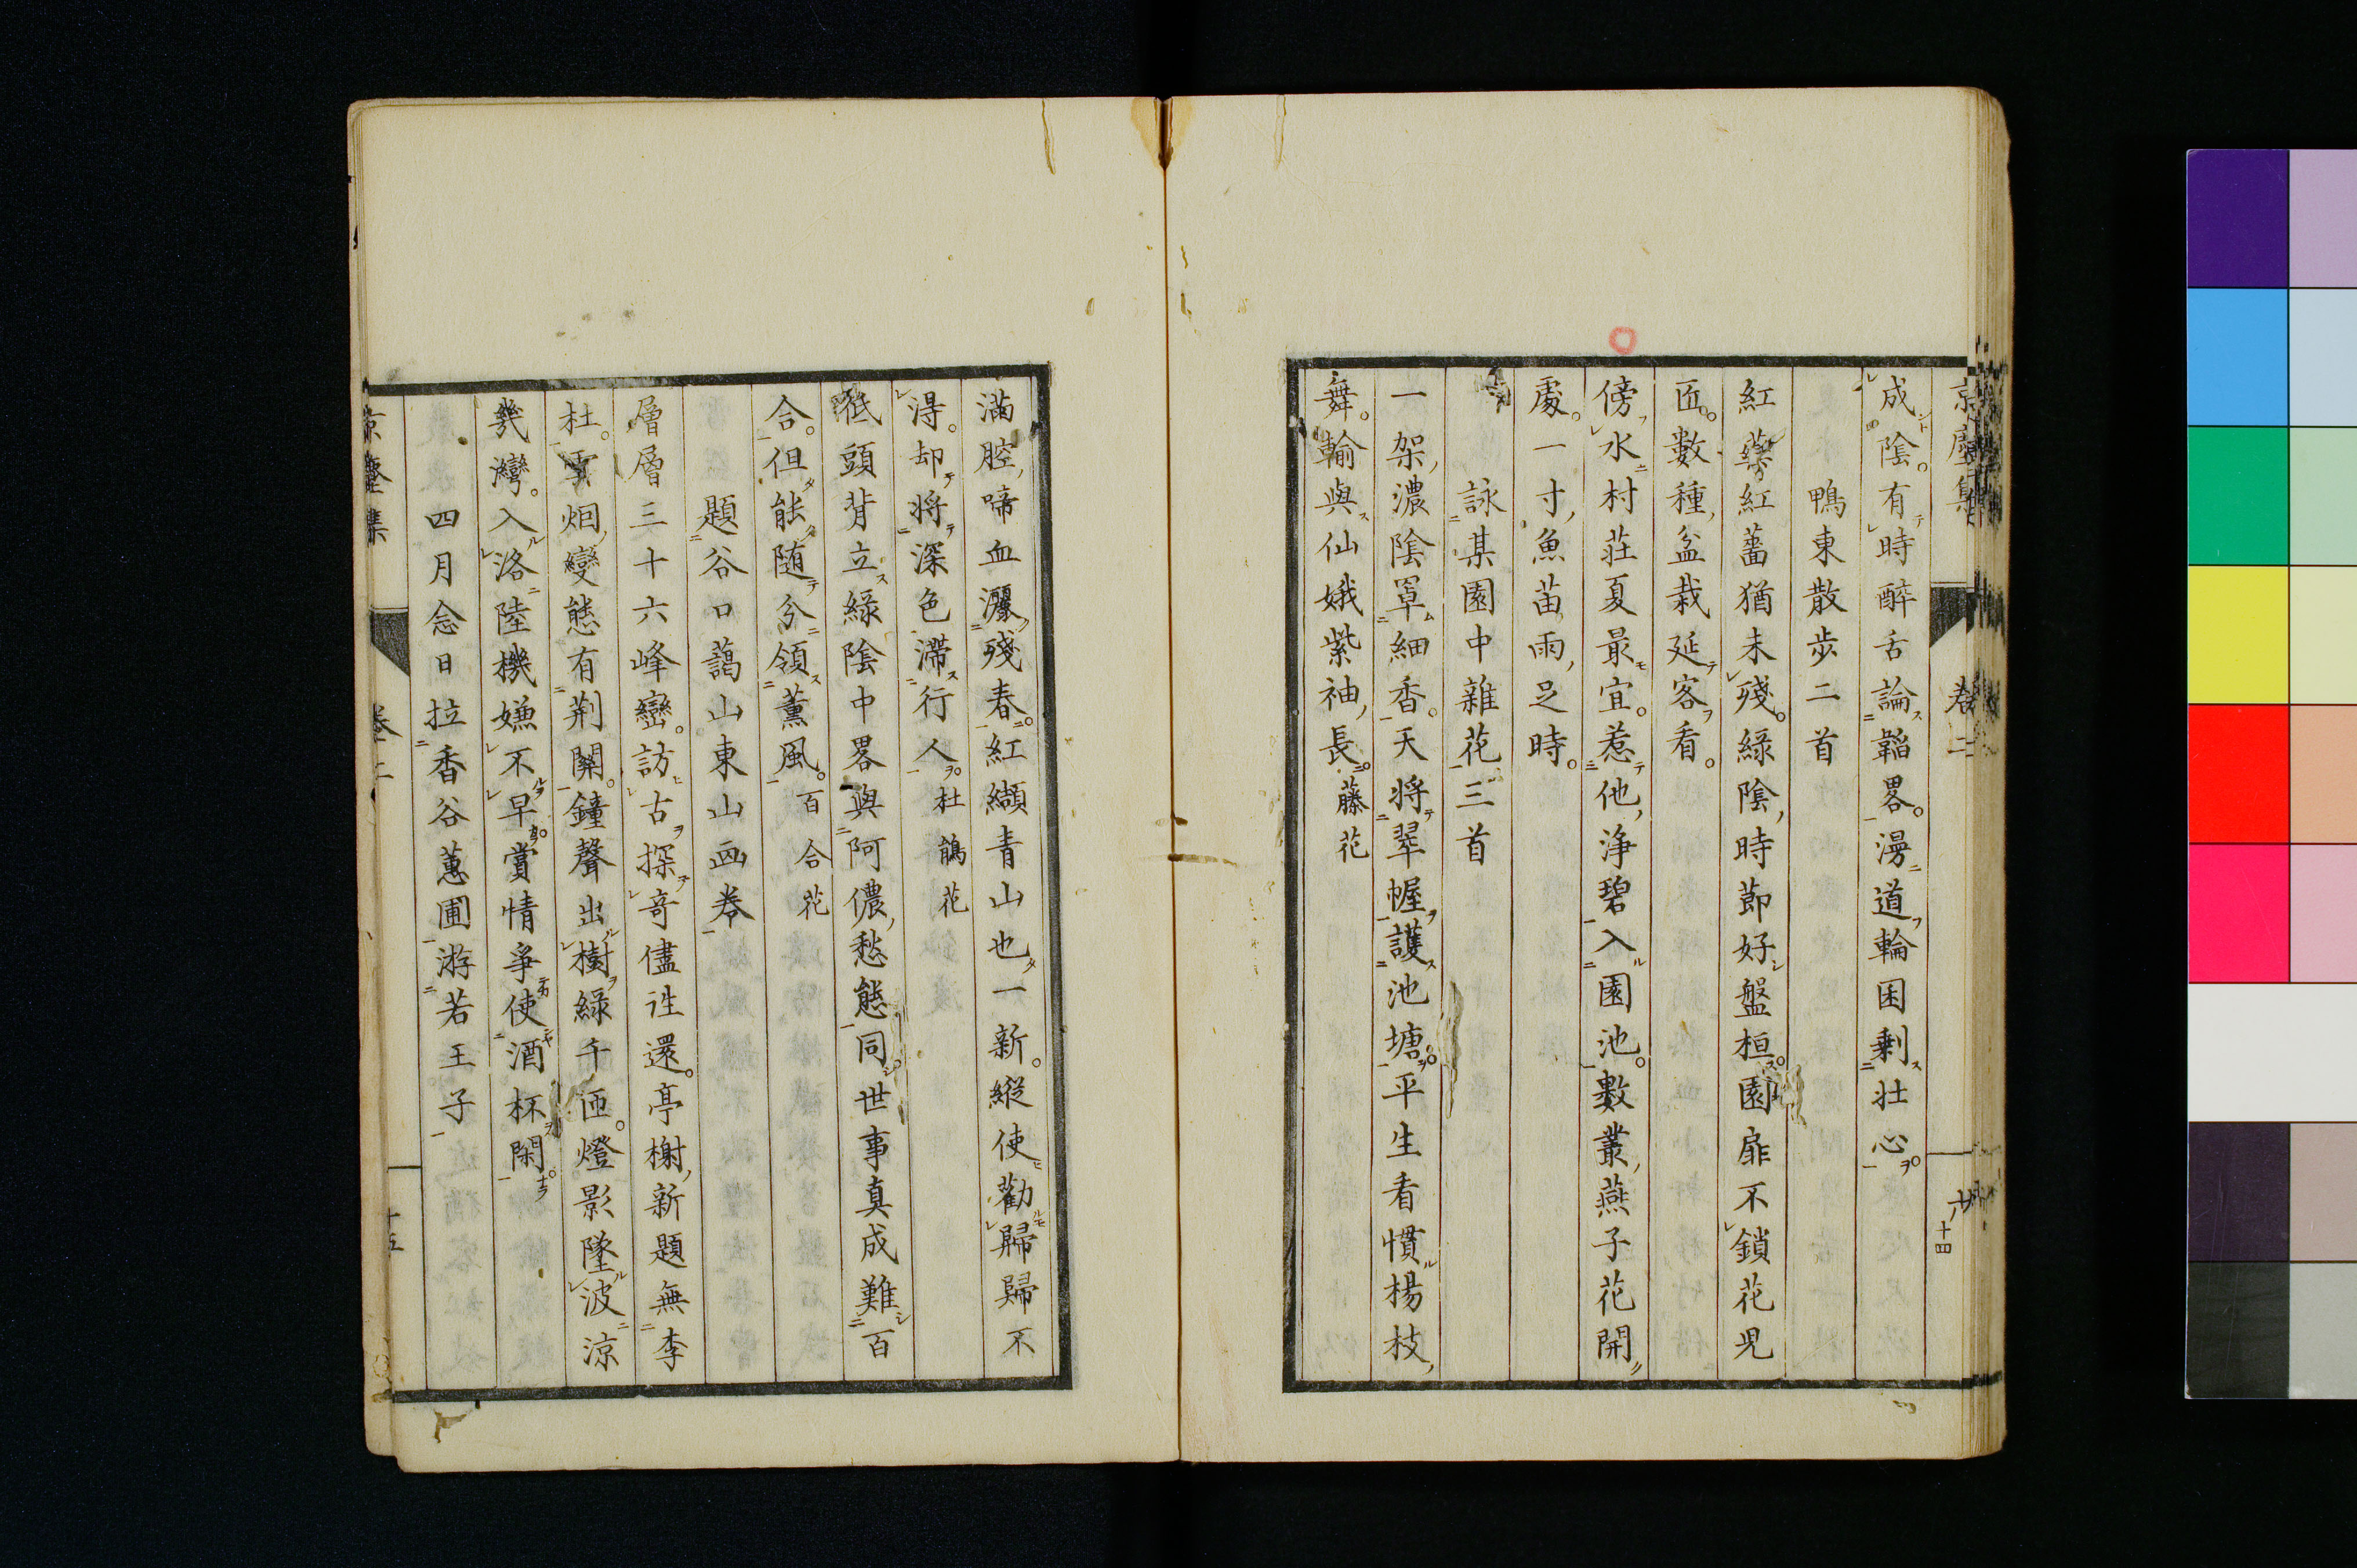 成陰。有時醉舌論韜畧。漫道輪囷剩壯心。
鴨東散步二首
紅藥紅薔猶未殘。綠陰時節好盤桓。園扉不鎖花兒
匝。數種盆栽延客看。
傍水村莊夏最宜。惹他淨碧入園池。數叢燕子花開
處。一寸魚苗雨足時。
詠某園中雜花三首
一架濃陰罩細香。天將翠幄護池塘。平生看慣楊枝
舞。輸與仙娥紫袖長。藤花
卷二
十四
滿腔啼血灑殘春。紅纈青山也一新。縱使勸歸歸不
得。却將深色滯行人。杜鵑花
低頭背立綠陰中。畧與阿儂愁態同。世事真成難百
合。但能随分領薰風。百合花
題谷口藹山東山画卷
層層三十六峰巒。訪古探奇儘往還。亭榭新題無李
杜。雲烟變態有荆關。鐘聲出樹綠千匝。燈影墜波涼
幾灣。入洛陸機嫌不早。賞情爭使酒杯閑。
四月念日拉香谷蕙圃游若王子
卷二
十五